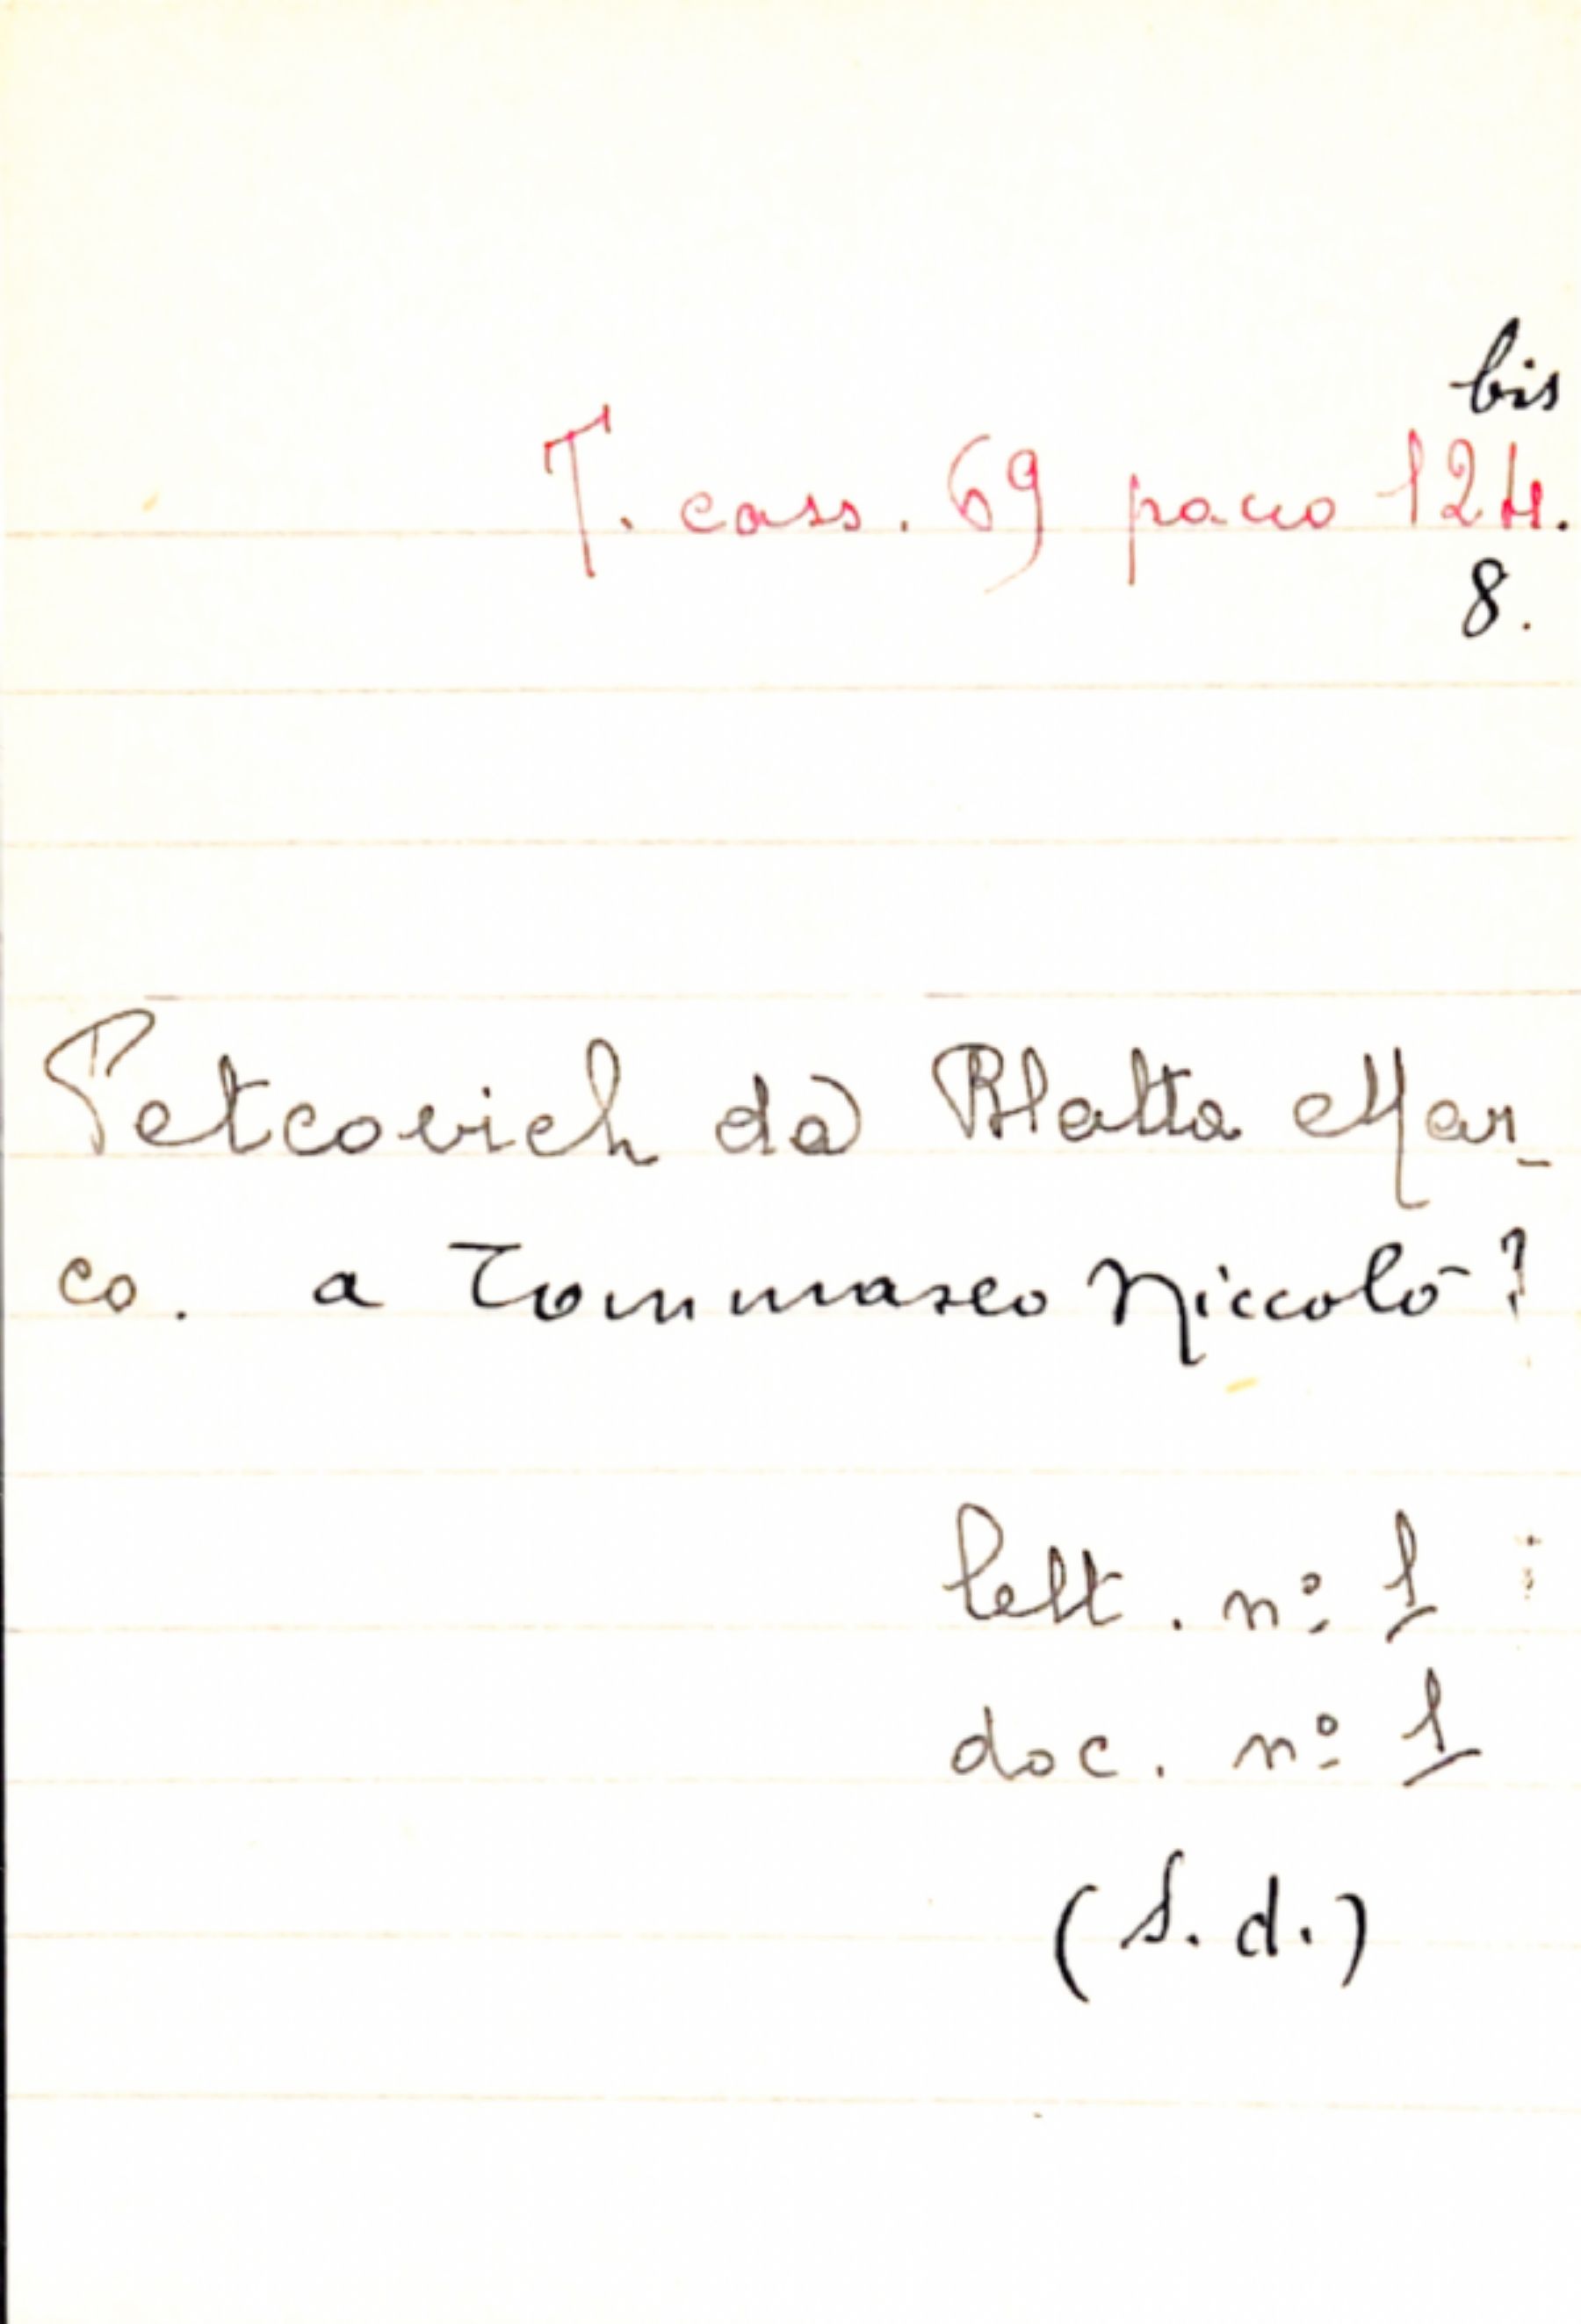 bis
T. cass. 69 pacco 124.
8.
Petcovich da Blatta Mar-
co. a Tommaseo Niccolò?
lett. nº 1
doc. nº 1
(S.d.)